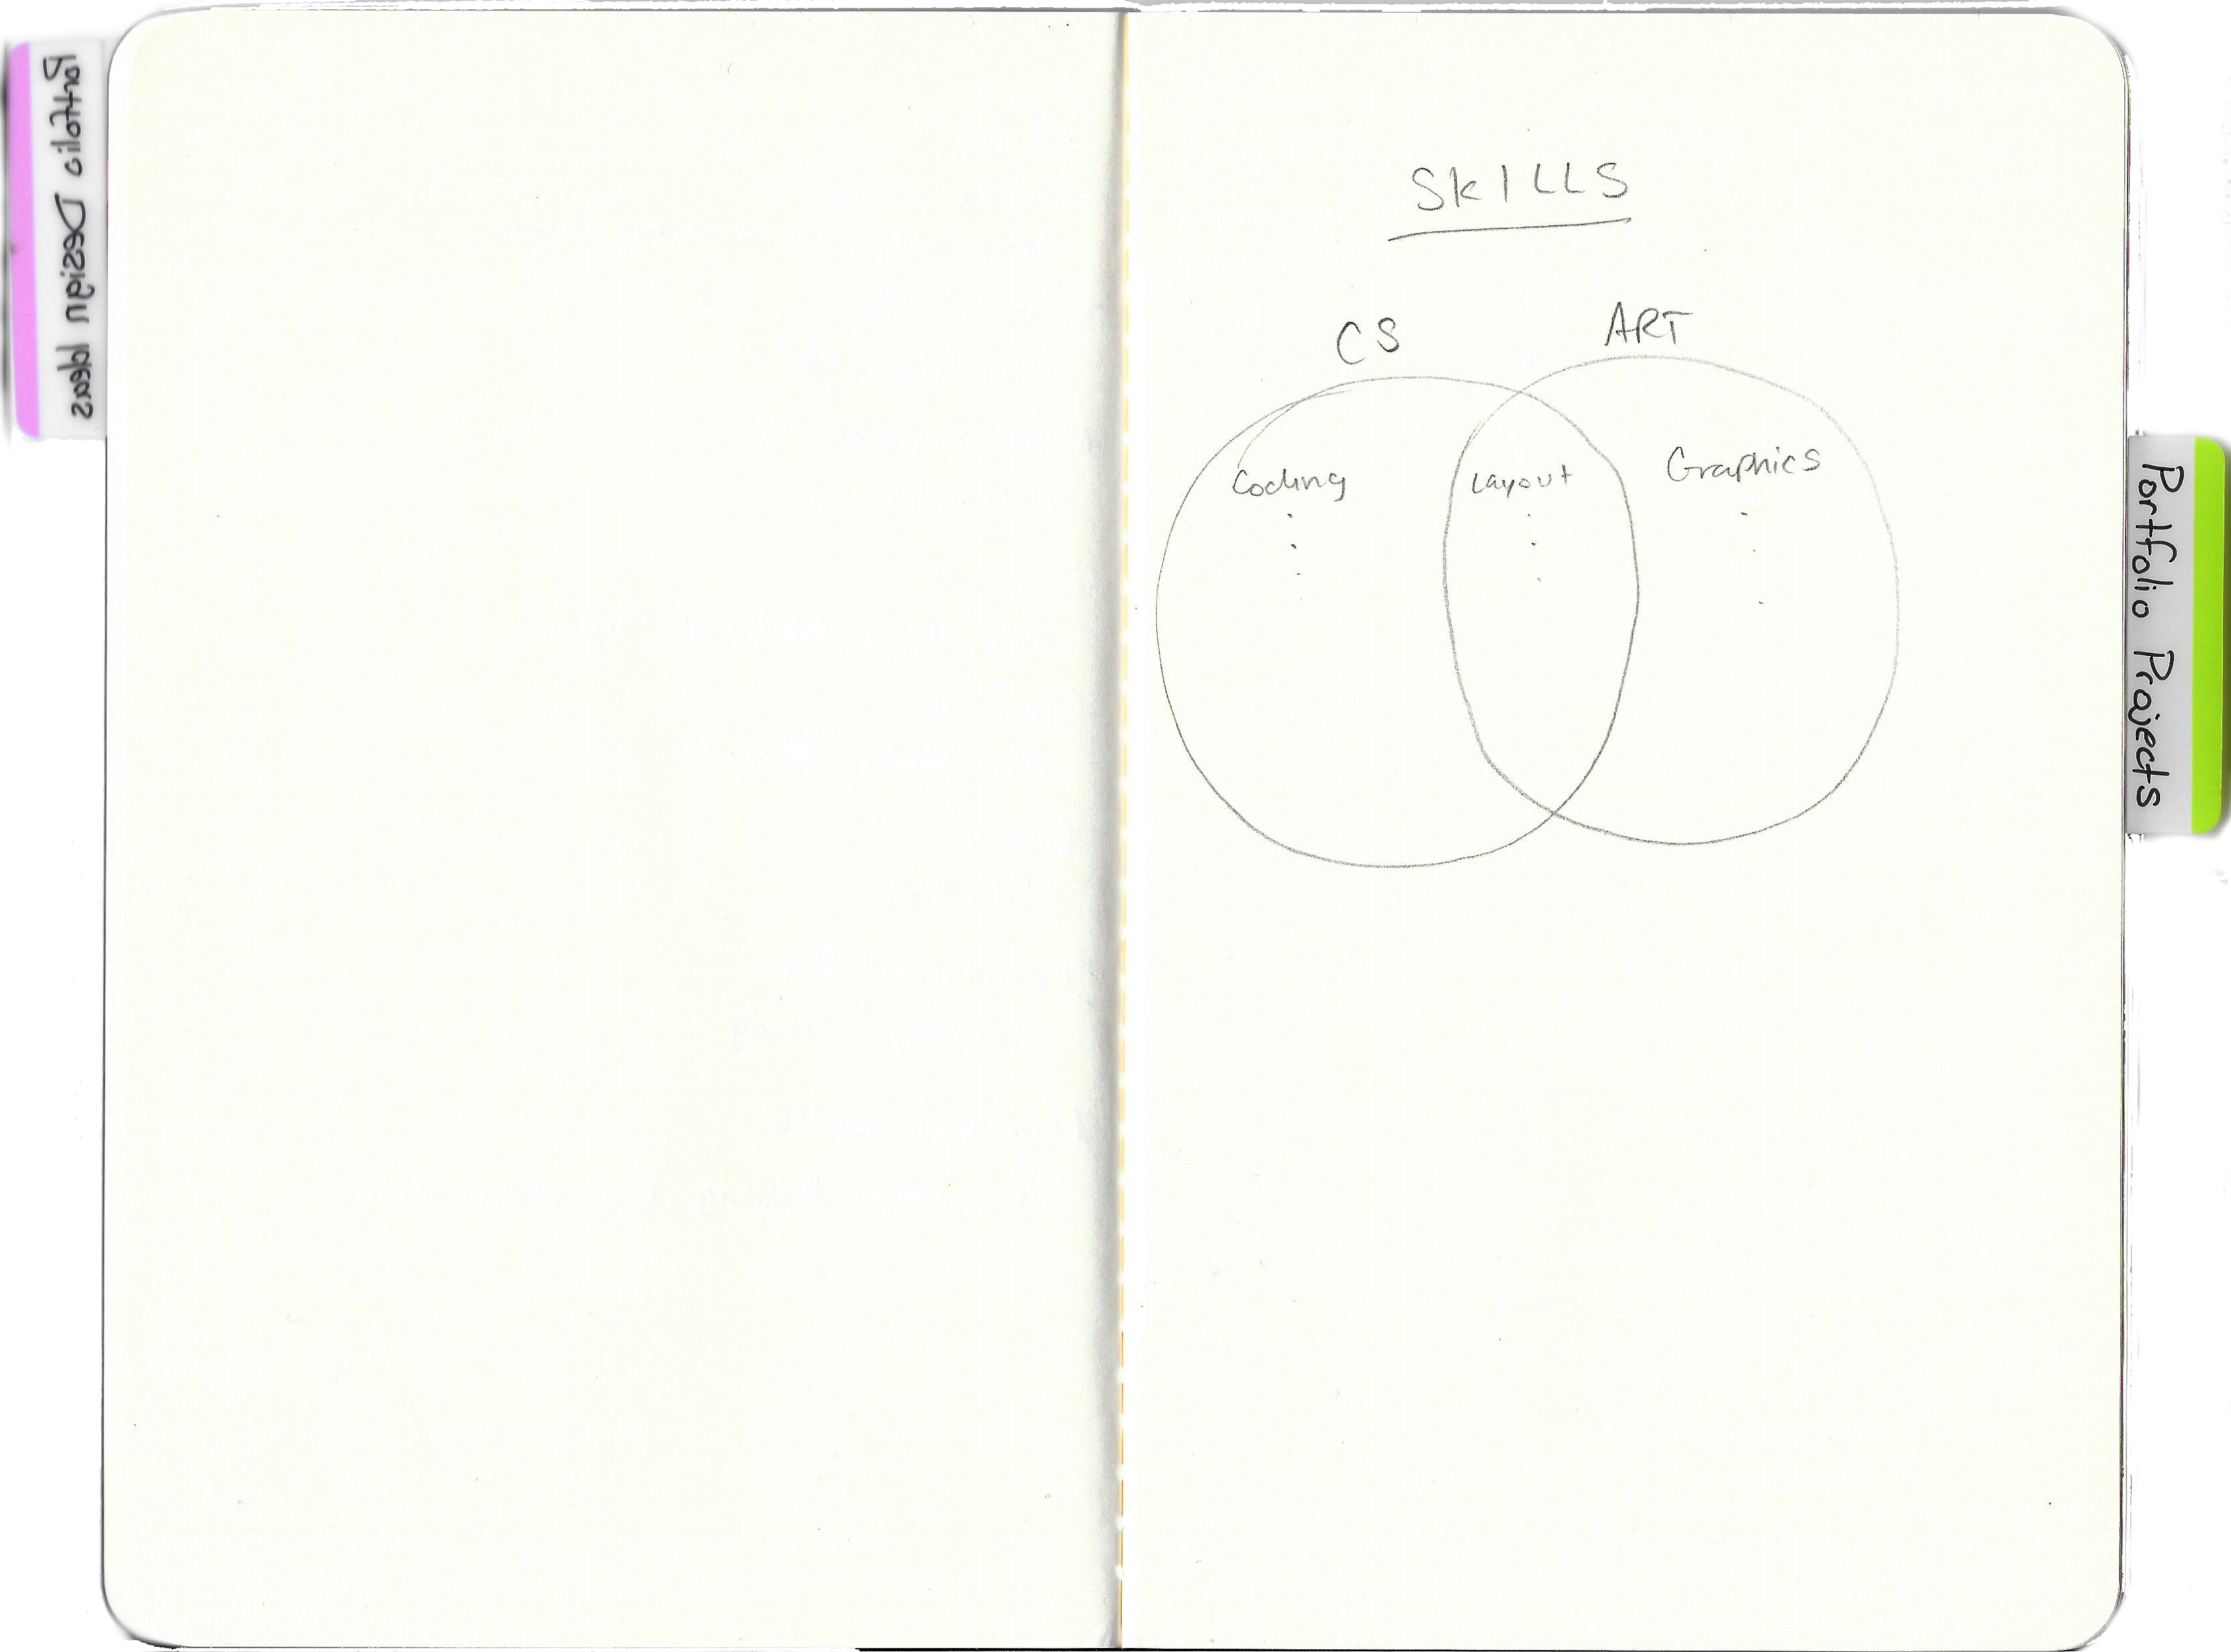 Portfolio Design Ideas
SKILLS
CS
ART
Coding
Layout
Graphics
Portfolio Projects